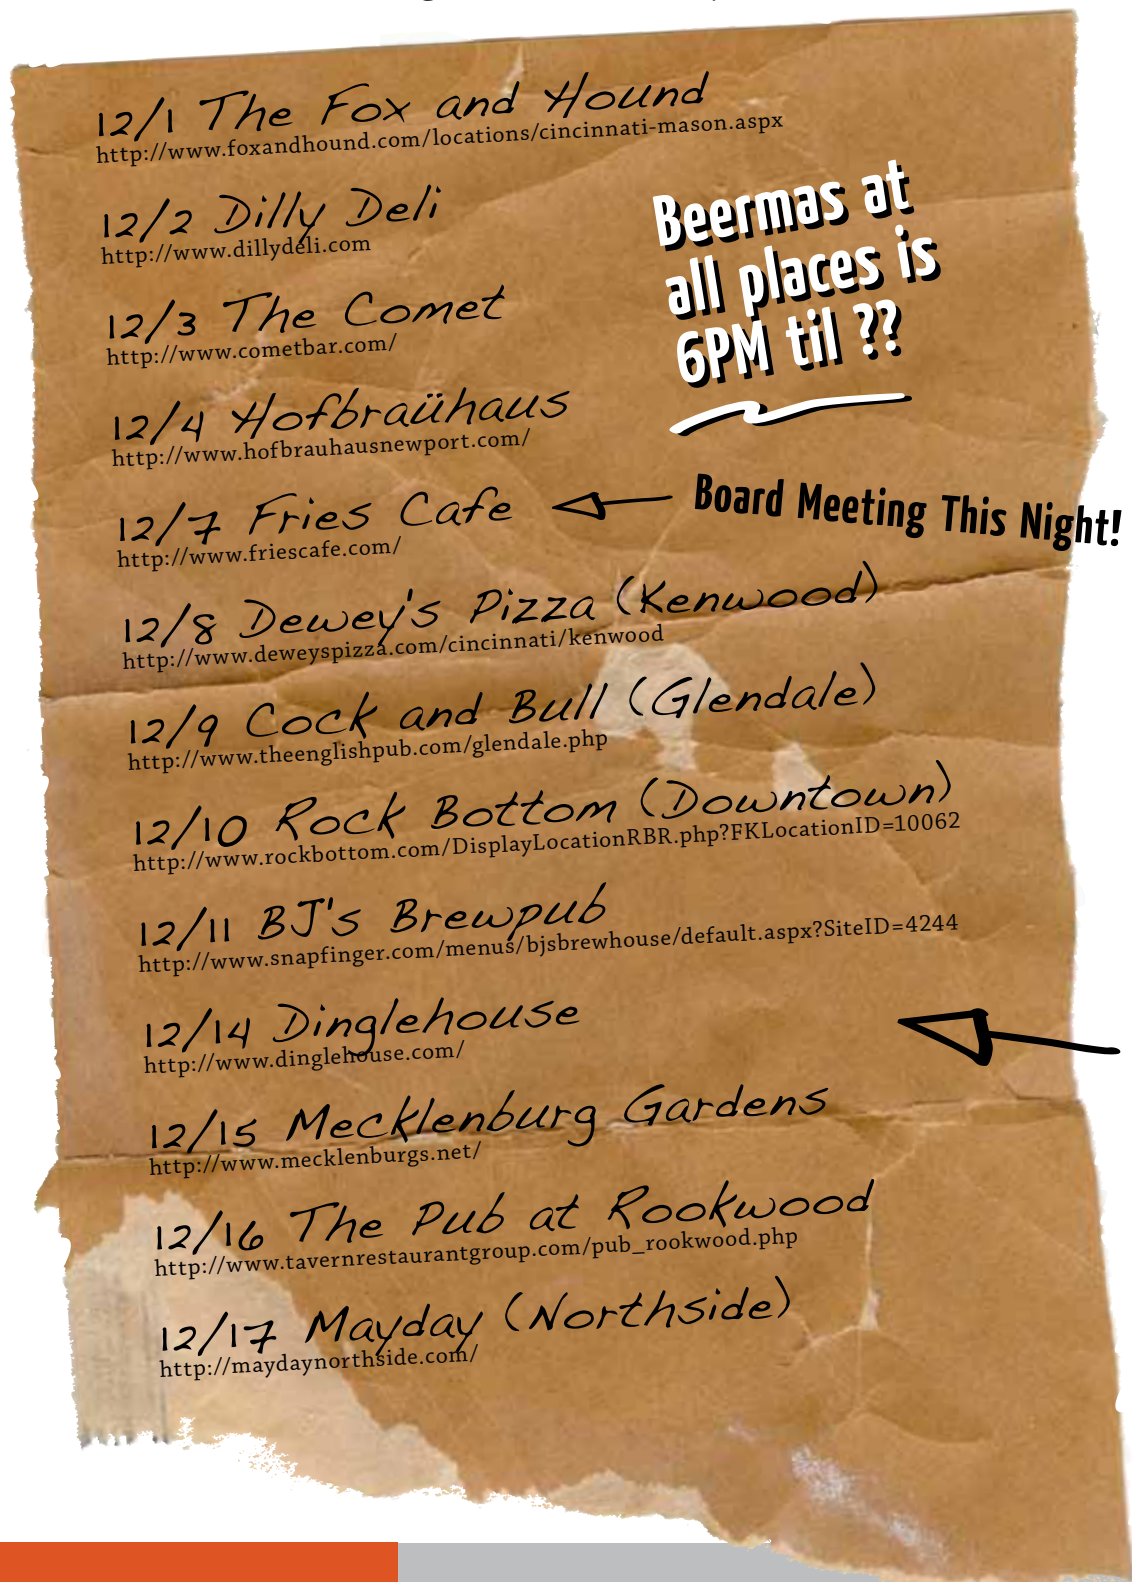 12/1 The Fox and Hound
http://www.foxandhound.com/locations/cincinnati-mason.aspx
12/2 Dilly Deli
http://www.dillydeli.com
Beermas at
all places is
6PM til ??
12/3 The Comet
http://www.cometbar.com/
12/4 Hofbraühaus
http://www.hofbrauhausnewport.com/
12/7 Fries Cafe
http://www.friescafe.com/
Board Meeting This Night!
12/8 Dewey's Pizza (Kenwood)
http://www.deweyspizza.com/cincinnati/kenwood
12/9 Cock and Bull (Glendale)
http://www.theenglishpub.com/glendale.php
12/10 Rock Bottom (Downtown)
http://www.rockbottom.com/DisplayLocationRBR.php?FKLocationID=10062
12/11 BJ's Brewpub
http://www.snapfinger.com/menus/bjsbrewhouse/default.aspx?SiteID=4244
12/14 Dinglehouse
http://www.dinglehouse.com/
12/15 Mecklenburg Gardens
http://www.mecklenburgs.net/
12/16 The Pub at Rookwood
http://www.tavernrestaurantgroup.com/pub_rookwood.php
12/17 Mayday (Northside)
http://maydaynorthside.com/